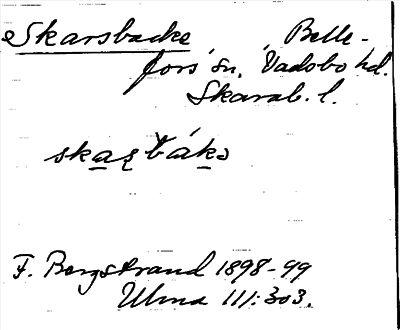 Skarsbacke Belle-
fors sn. Vadsbo hd.
Skarab. l.
F. Bergstrand 1898-99
Ulma 111:303.